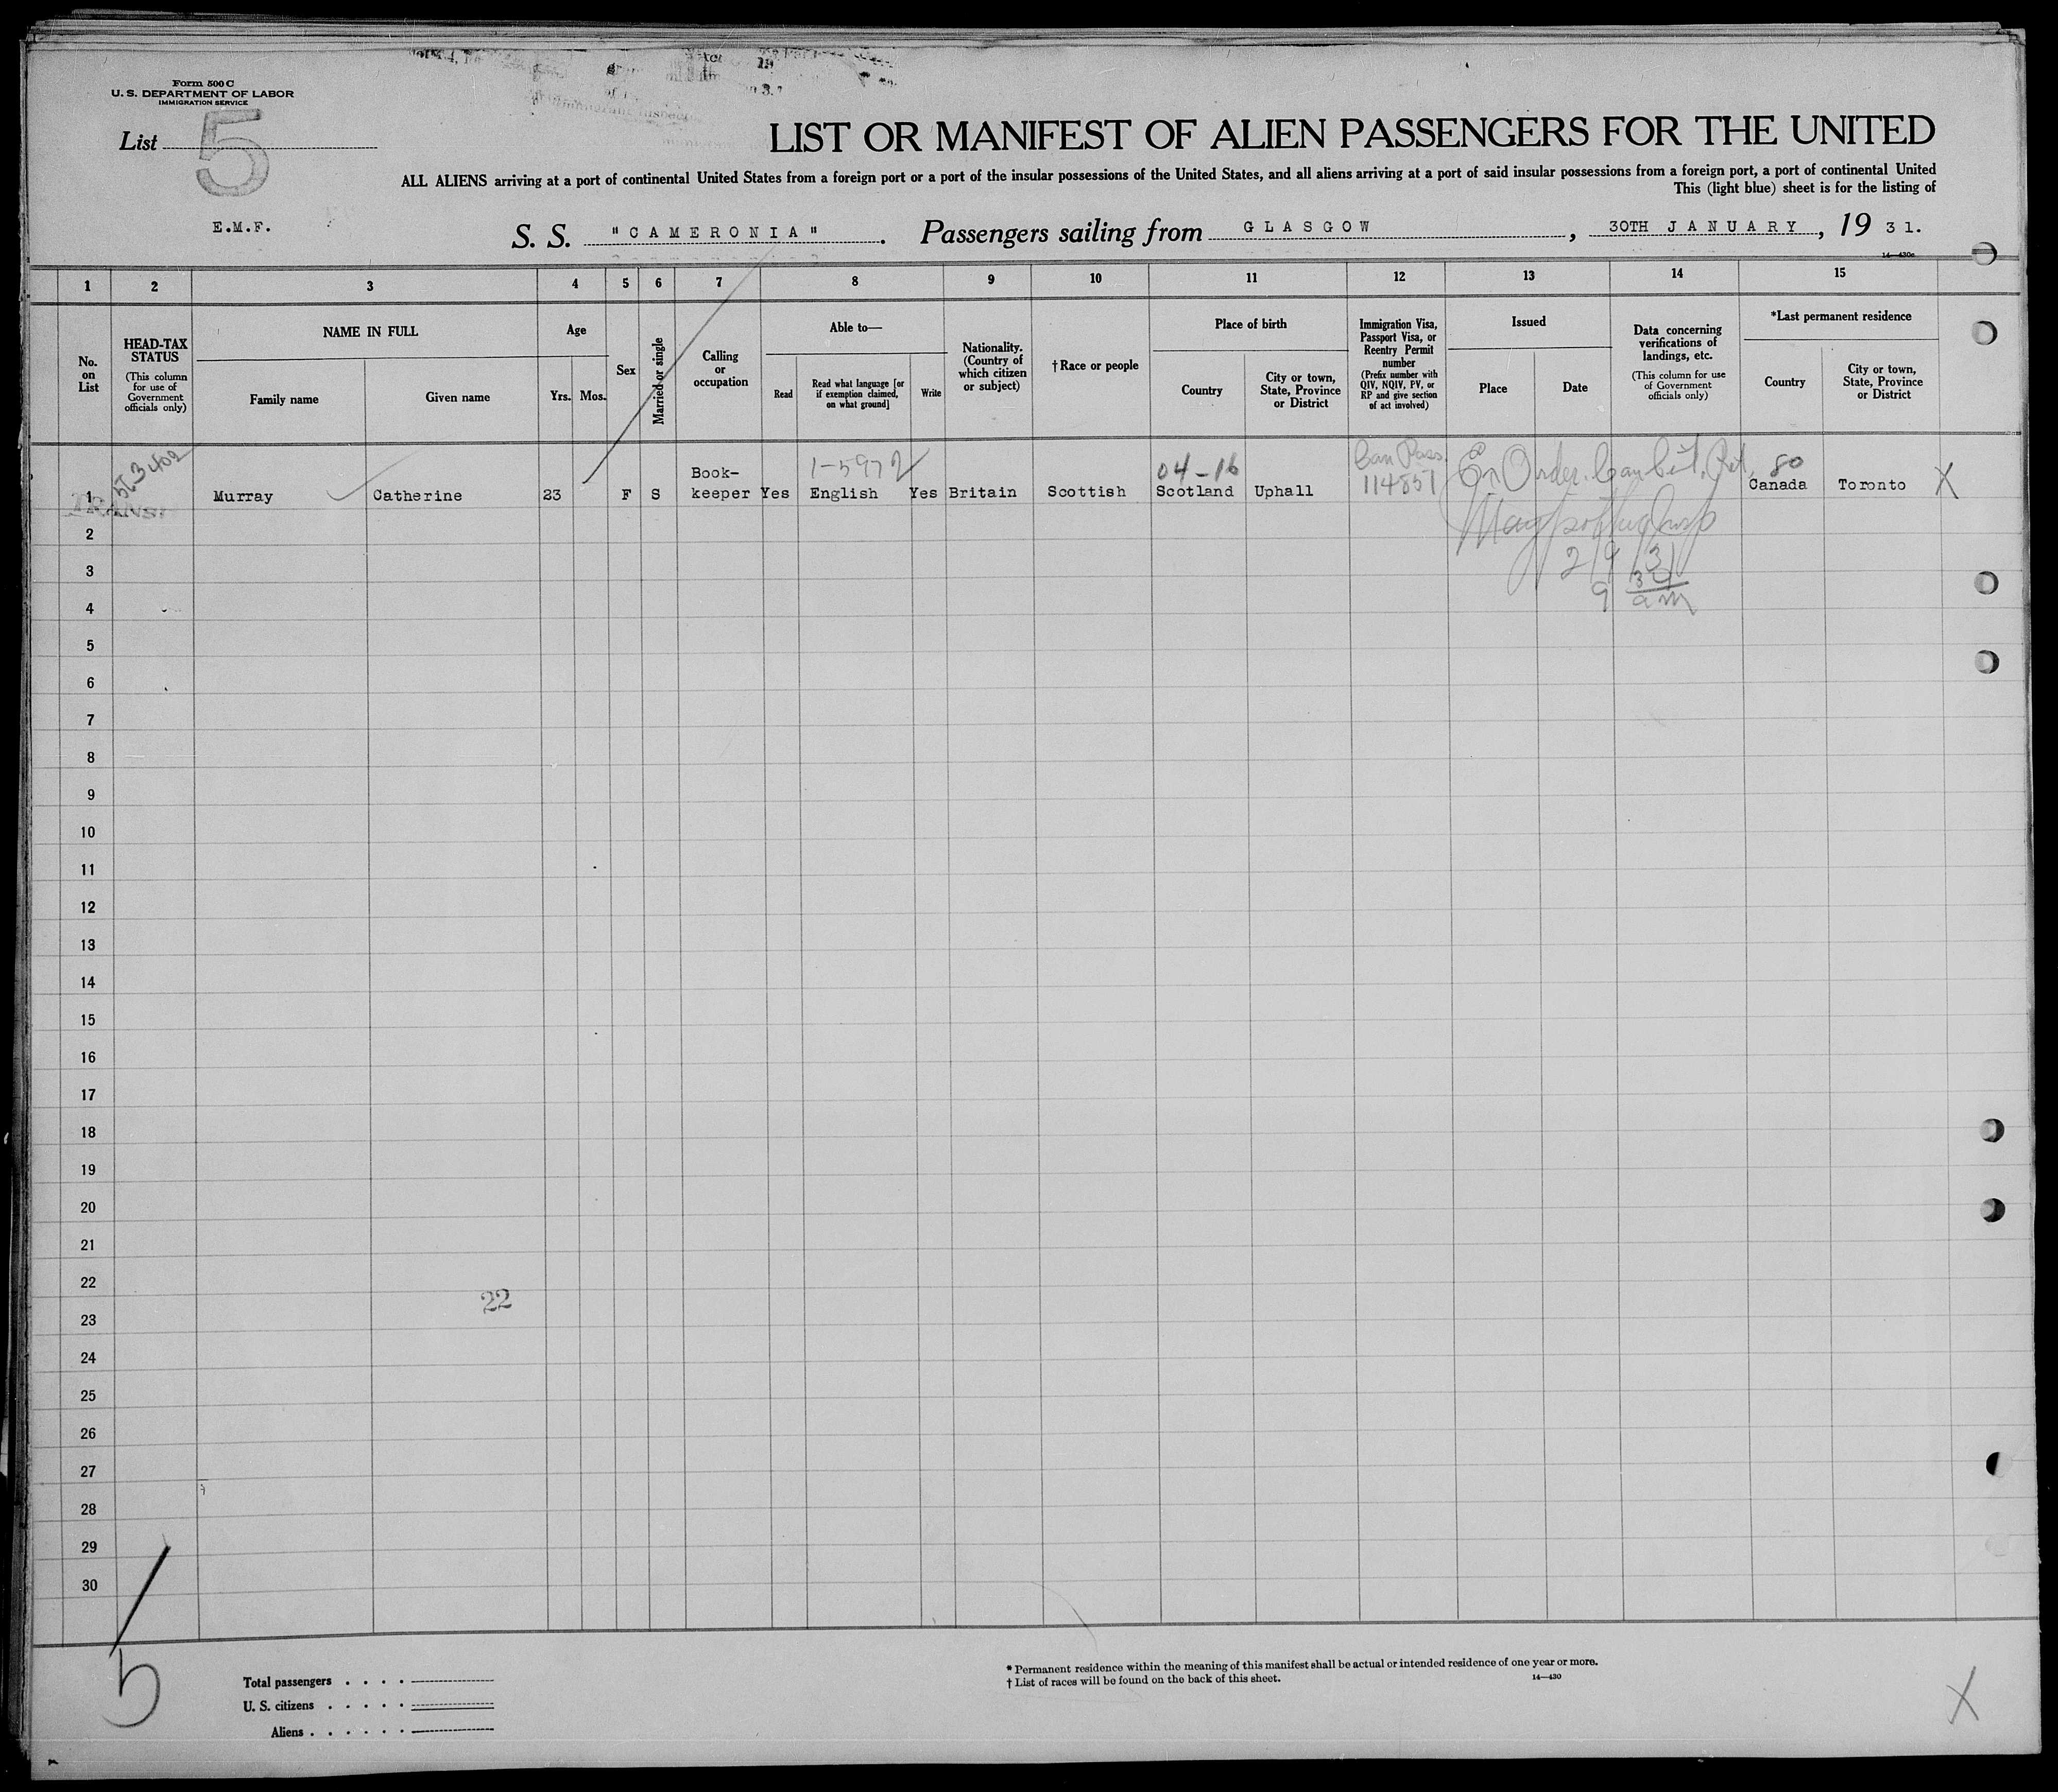 Form 500 C
U. S. DEPARTMENT OF LABOR
IMMIGRATION SERVICE
List 5
LIST OR MANIFEST OF ALIEN PASSENGERS FOR THE UNITED
ALL ALIENS arriving at a port of continental United States from a foreign port or a port of the insular possessions of the United States, and all aliens arriving at a port of said insular possessions from a foreign port, a port of continental United
This (light blue) sheet is for the listing of
E.M.F.
S. S. "CAMERONIA". Passengers sailing from GLASGOW, 30TH JANUARY, 1931.
14—430c
1 2 3 4 5 6 7 8 9 10 11 12 13 14 15
No. on List
HEAD-TAX STATUS
(This column for use of Government officials only)
NAME IN FULL
Family name
Given name
Age
Yrs. Mos.
Sex
Married or single
Calling or occupation
Able to—
Read
Read what language [or if exemption claimed, on what ground]
Write
Nationality. (Country of which citizen or subject)
†Race or people
Place of birth
Country
City or town, State, Province or District
Immigration Visa, Passport Visa, or Reentry Permit number
(Prefix number with QIV, NQIV, PV, or RP and give section of act involved)
Issued
Place
Date
Data concerning verifications of landings, etc.
(This column for use of Government officials only)
*Last permanent residence
Country
City or town, State, Province or District
1-5972 04-16 Can Pass. 80
1 Murray Catherine 23 F S Book-keeper Yes English Yes Britain Scottish Scotland Uphall 114851 Canada Toronto X
TRANSIT
2
2/9/31
3
9 30 am
4
5
6
7
8
9
10
11
12
13
14
15
16
17
18
19
20
21
22
22
23
24
25
26
27
28
29
30
5
Total passengers
U. S. citizens
Aliens
* Permanent residence within the meaning of this manifest shall be actual or intended residence of one year or more.
† List of races will be found on the back of this sheet.
14—430
X